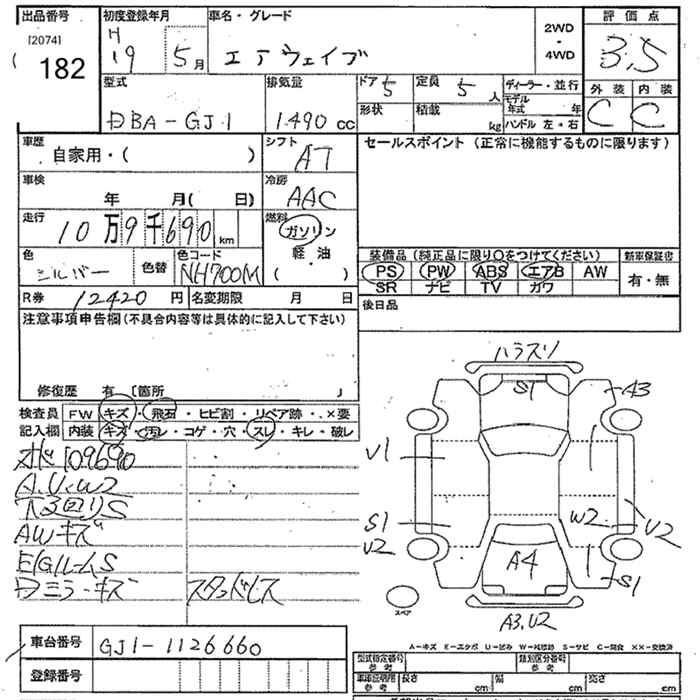 出品番号 初度登録年月 車名・グレード 評価点
[2074] 182 H 19 5月 エアウェイブ 2WD・4WD 3.5
型式 排気量 ドア 5 定員 5人 ディーラー・並行 外装 内装
DBA-GJ1 1.490 cc 形状 積載 kg モデル年式 年 C C
ハンドル 左・右
車歴 シフト セールスポイント (正常に機能するものに限ります)
自家用・( ) AT
車検 冷房
年 月( 日) AAC
走行 燃料
10万9千690km ガソリン
色 色替 色コード 軽・油 装備品 (純正品に限り○をつけてください) 新車保証書
シルバー NH700M ( ) PS PW ABS エアB AW 有・無
SR ナビ TV カワ
R券 12420 円 名変期限 月 日 後日品
注意事項申告欄(不具合内容等は具体的に記入して下さい)
修復歴 有 [箇所 ]
検査員 FW キズ・飛石・ヒビ割・リペア跡・×要
記入欄 内装 キズ・汚レ・コゲ・穴・スレ・キレ・破レ
109690
A.U.W2
下回りS
AWキズ
E/GルームS
ミラーキズ スタッドレス
ハラスリ
S1
A3
U1
S1
U2
W2
U2
A4
S1
スペア
A3.U2
車台番号 GJ1-1126660
登録番号
A-キズ E-エクボ U-凹み W-補修跡 S-サビ C-腐食 XX-交換済
型式指定番号 参考 類別区分番号 参考
車車証明用 参考 長さ cm 幅 cm 高さ cm